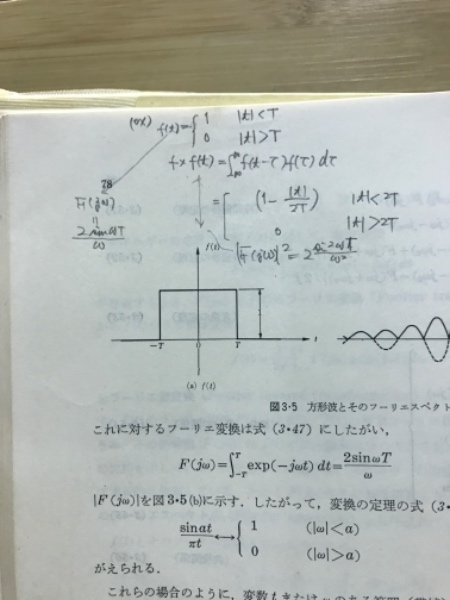 (ex) f(t) = { 1 |t|<T
0 |t|>T
f*f(t) = ∫ f(t-τ)f(τ) dτ
F(jω)
= { (1 - |t|/2T) |t|<2T
0 |t|>2T
2 sin ωT / ω
|F(jω)|² =
f(t)
-T 0 T t
(a) f(t)
図3・5 方形波とそのフーリエスペクト
これに対するフーリエ変換は式 (3・47) にしたがい,
F(jω)=∫_{-T}^{T} exp(-jωt) dt = 2sinωT / ω
|F(jω)|を図3・5(b)に示す. したがって, 変換の定理の式 (3・
sinat / πt ↔ { 1 (|ω|<a)
0 (|ω|>a)
がえられる.
これらの場合のように, 変数 t または ω のある